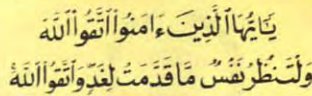 يَٰٓأَيُّهَا ٱلَّذِينَ ءَامَنُوا۟ ٱتَّقُوا۟ ٱللَّهَ
وَلْتَنظُرْ نَفْسٌ مَّا قَدَّمَتْ لِغَدٍ وَٱتَّقُوا۟ ٱللَّهَ